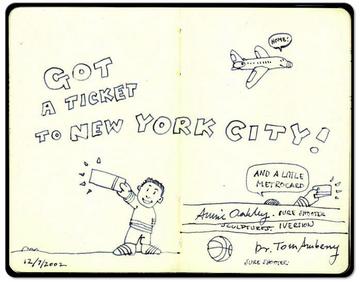 GOT
A TICKET
TO NEW YORK CITY!
HOME!
AND A LITTLE
METROCARD
Annie Oakley. SURE SHOOTER
SCULPTURES. VERSION
Dr. Tom Amberry
SURE SHOOTER.
12/7/2002